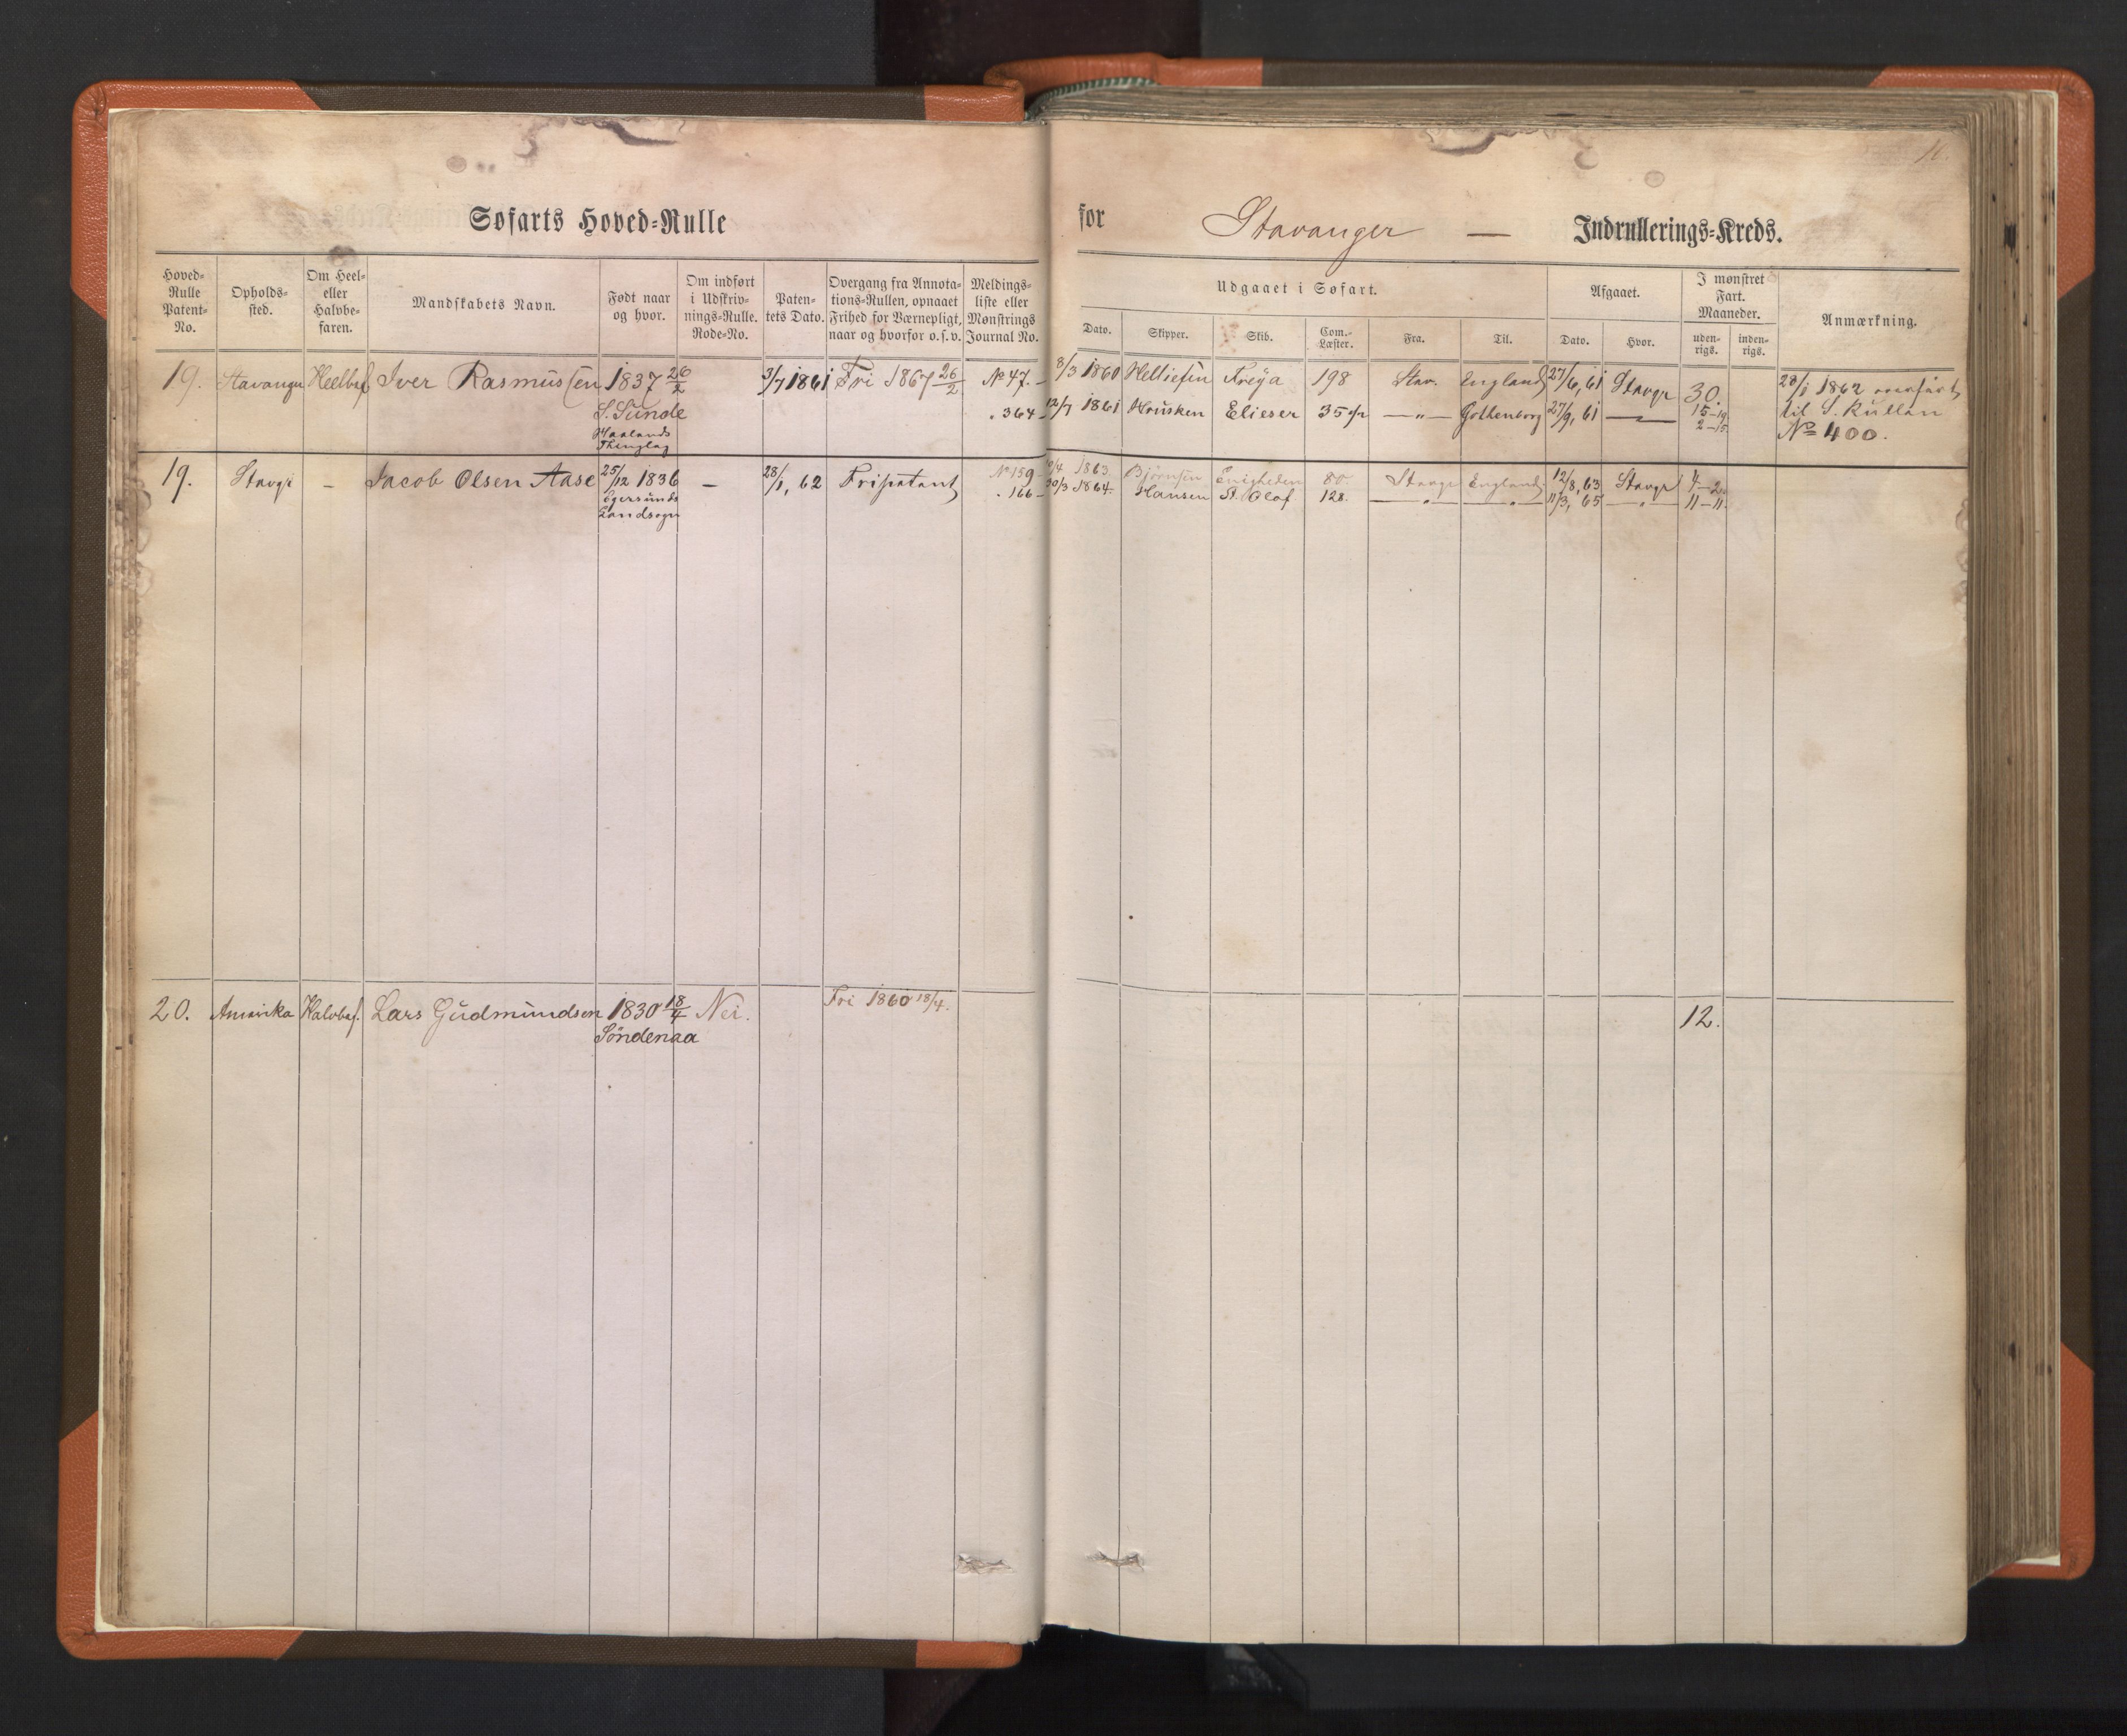 10.
Søfarts Hoved-Rulle for Stavanger — Indrullerings-Kreds.
Hoved-Rulle Patent-No.
Opholds-sted.
Om Heel- eller Halvbe-faren.
Mandskabets Navn.
Født naar og hvor.
Om indført i Udskriv-nings-Rulle. Rode-No.
Paten-tets Dato.
Overgang fra Annota-tions-Rullen, opnaaet Frihed for Værnepligt, naar og hvorfor o.s.v.
Meldings-liste eller Mønstrings Journal No.
Udgaaet i Søfart.
Dato. Skipper. Skib. Com.-Læster. Fra. Til.
Afgaaet.
Dato. Hvor.
I mønstret Fart. Maaneder.
uden-rigs. inden-rigs.
Anmærkning.
19. Stavanger Heelbef. Iver Rasmussen 1837 26/2 3/7 1861 Fri 1867 26/2 No 47. 8/3 1860 Helliesen Freya 198 Stav. England 27/6, 61 Stavgr 30. 28/1 1862 overført
S. Sunde " 364 12/7 1861 Housken Elieser 35 1/2 — " — Gothenborg 27/9, 61 — 15-19 til S. Rullen
Haalands 2-15 No 400.
Thinglag
19. Stavgr - Jacob Olsen Aase 25/12 1836 — 28/1, 62 Fripatent No 159 /4 1863 Bjørnsen Enigheden 80 Stavgr England 12/8, 63 Stavgr 4-2
Egersunds " 166 30/3 1864 Hansen St. Olaf 128. — " — — " — 11/3, 65 — " — 11-11.
Landsogn
20. Amerika Halvbef. Lars Gudmundsen 1830 18/4 Nei. Fri 1860 18/4. 12.
Söndenaa